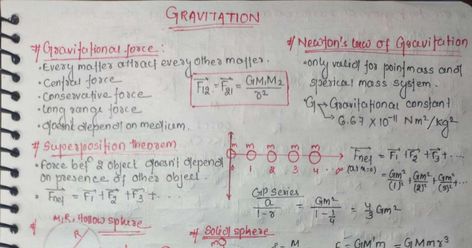 GRAVITATION
# Gravitational force :
• Every matter attract every other matter.
• Central force
• Conservative force
• Long range force
• doesn't depend on medium.
F12 = F21 = GM1M2 / r²
# Newton's law of Gravitation
• only valid for point mass and
sperical mass system.
G → Gravitational constant
6.67 X 10-11 Nm²/kg²
# Superposition theorem
• Force bet² 2 object doesn't depend
on presence of other object.
• Fnet = F1 + F2 + F3 + . . .
m m m m m
0 1 2 3 4 ∞
Fnet = F1 + F2 + F3 + ..
(at x=0) = Gm²/(1)² + Gm²/(2)² +
GP series
a / 1-r = Gm² / 1-1/4 = 4/3 Gm²
# M,R, Hollow sphere
R
# Solid sphere